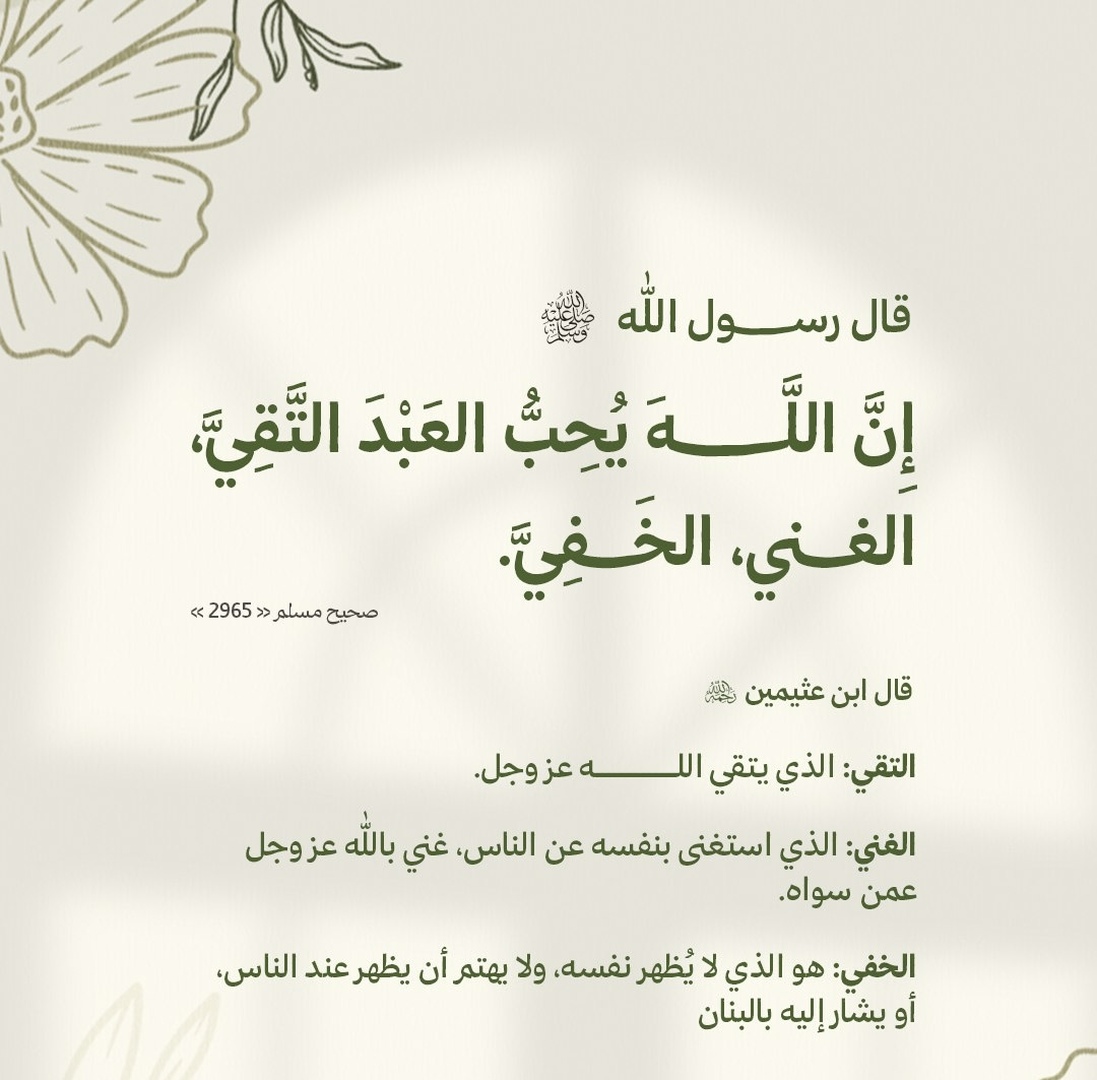 قال رسول الله ﷺ
إِنَّ اللَّهَ يُحِبُّ العَبْدَ التَّقِيَّ،
الغني، الخَفِيَّ.
صحيح مسلم « 2965 »
قال ابن عثيمين رحمه الله
التقي: الذي يتقي الله عز وجل.
الغني: الذي استغنى بنفسه عن الناس، غني بالله عز وجل
عمن سواه.
الخفي: هو الذي لا يُظهر نفسه، ولا يهتم أن يظهر عند الناس،
أو يشار إليه بالبنان